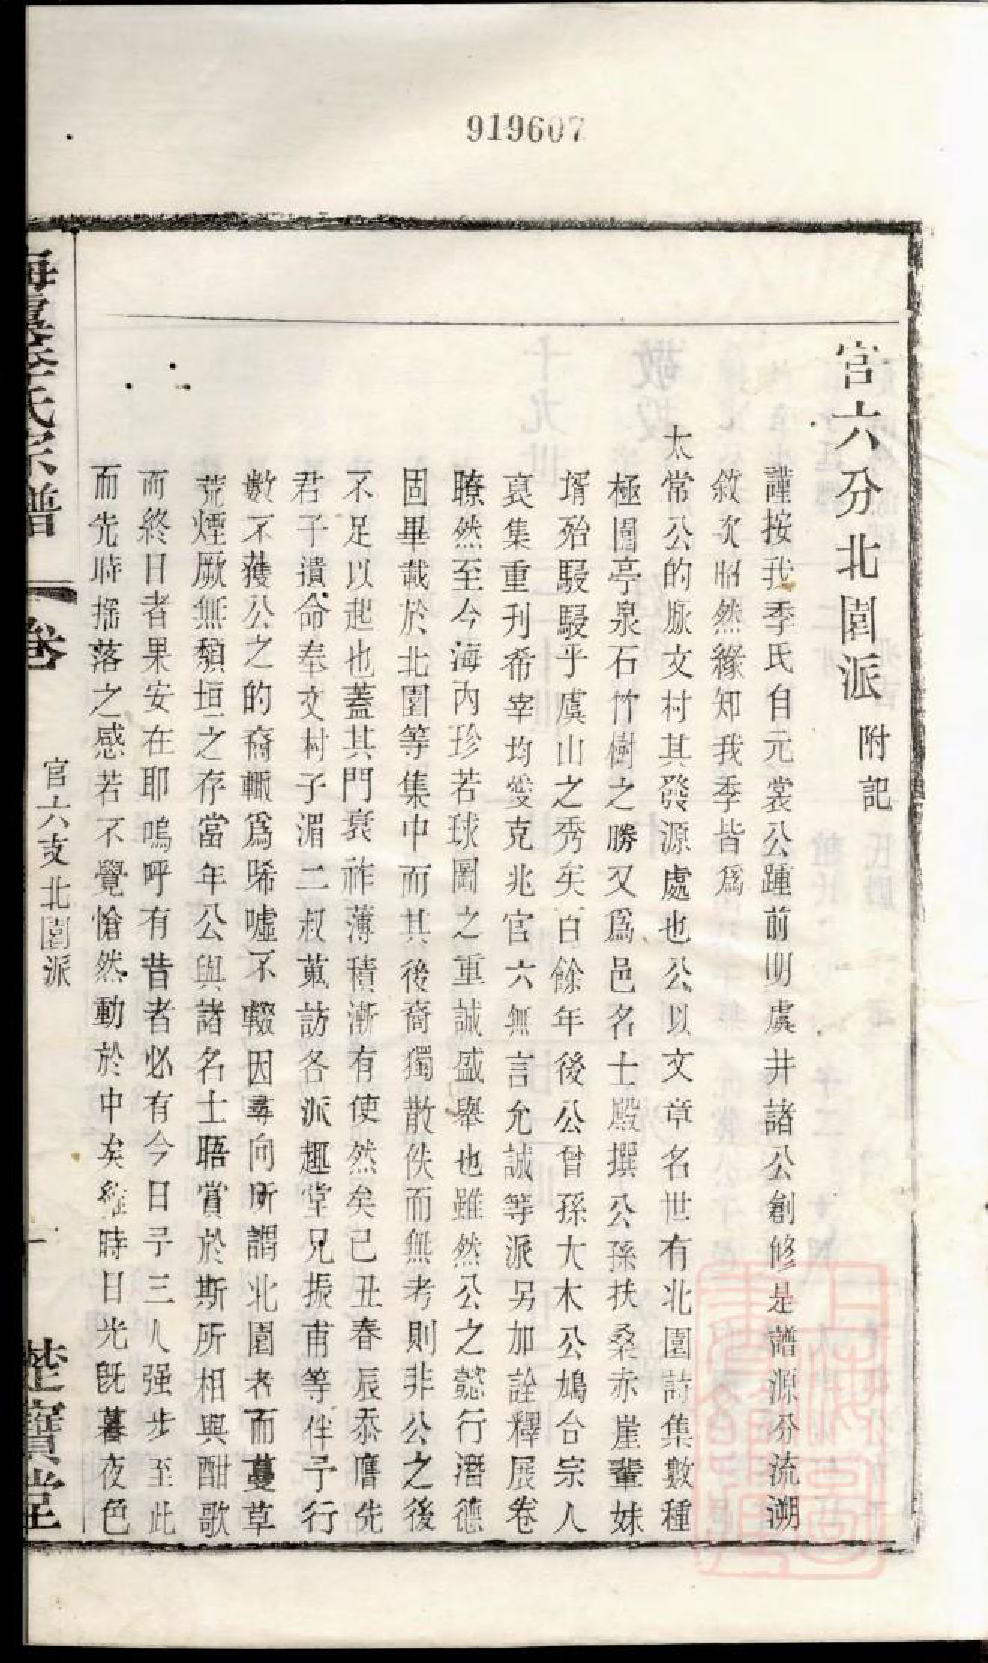 919607
官六分北園派附記
謹按我季氏自元裳公踵前明虞井諸公創修是譜源分流溯
敘次昭然緣知我季皆爲
太常公的脉文村其發源處也公以文章名世有北園詩集數種
極園亭泉石竹樹之勝又爲邑名士殿撰公孫扶桑赤崖輩姝
壻殆駸駸乎虞山之秀矣百餘年後公曾孫大木公鳩台宗人
裒集重刊希宰均爕克兆官六無言允誠等派另加詮釋展卷
瞭然至今海內珍若球圖之重誠盛舉也雖然公之懿行潛德
固畢載於北園等集中而其後裔獨散佚而無考則非公之後
不足以起也蓋其門衰祚薄積漸有使然矣己丑春辰忝膺先
君子遺命奉文村子湄二叔蒐訪各派趣堂兄振甫等伴予行
數不獲公之的裔輒爲唏噓不輟因尋向所謂北園者而蔓草
荒煙厥無頽垣之存當年公與諸名士晤賞於斯所相與酣歌
而終日者果安在耶嗚呼有昔者必有今日予三人强步至此
而先時搖落之感若不覺愴然動於中矣維時日光旣暮夜色
海虞季氏宗譜 卷 官六支北園派 一 楚寶堂